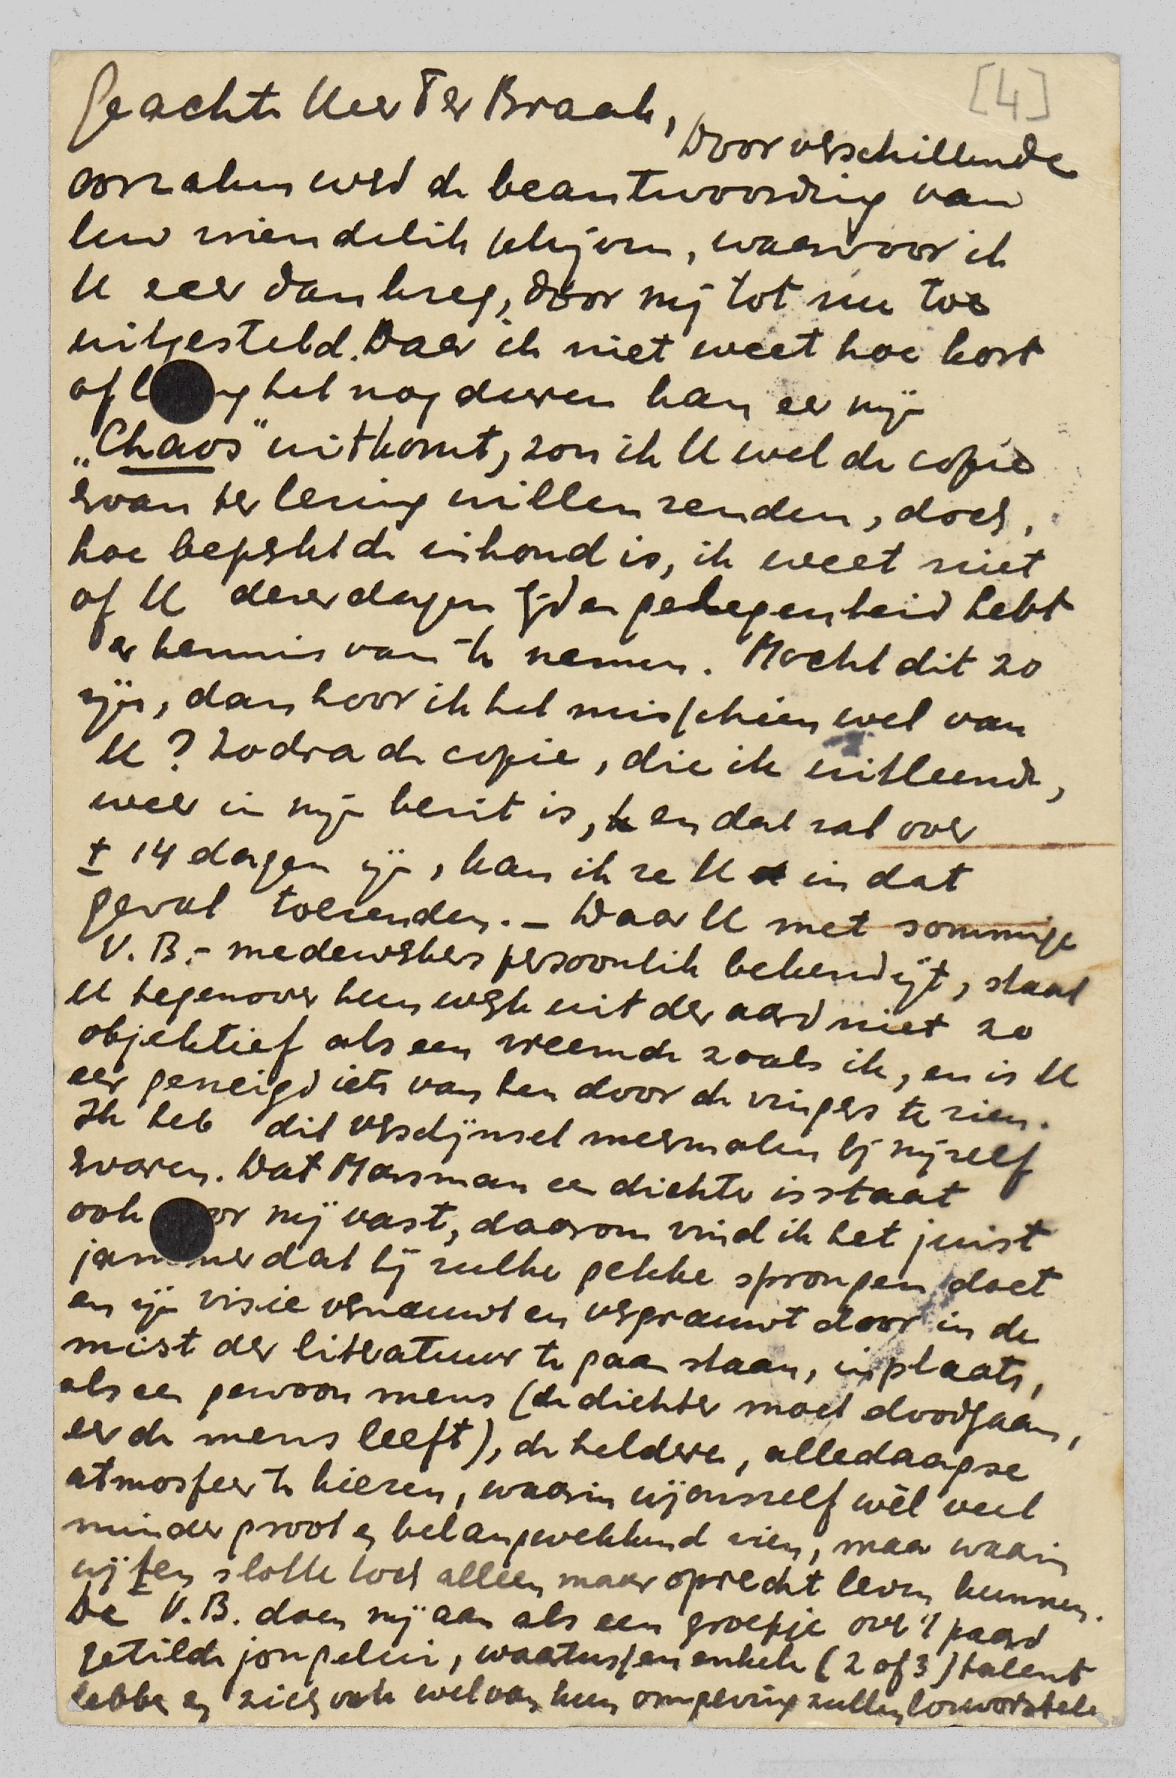 [4]
Geachte Heer Ter Braak,
Door verschillende
oorzaken werd de beantwoording van
Uw vriendelik schrijven, waarvoor ik
U zeer dank zeg, door mij tot nu toe
uitgesteld. Daar ik niet weet hoe kort
of l ng het nog duren kan, eer mijn
„Chaos" uitkomt, zou ik U wel de copie
ervan ter lezing willen zenden, doch,
hoe beperkt de inhoud is, ik weet niet
of U dezer dagen tijd en gelegenheid hebt
er kennis van te nemen. Mocht dit zo
zijn, dan hoor ik het misschien wel van
U? Zodra de copie, die ik uitleende,
weer in mijn bezit is, en dat zal over
± 14 dagen zijn, kan ik ze U in dat
geval toezenden. – Daar U met sommige
V.B.-medewerkers persoonlik bekend zijt, staat
U tegenover hun werk uit der aard niet zo
objektief als een vreemde zoals ik, en is U
eer geneigd iets van hen door de vingers te zien.
Ik heb dit verschijnsel meermalen bij mijzelf
ervaren. Dat Marsman een dichter is staat
ook or mij vast, daarom vind ik het juist
jammer dat hij zulke gekke sprongen doet
en zijn visie vernauwt en vergrauwt door in de
mist der literatuur te gaan staan, inplaats,
als een gewoon mens (de dichter moet doodgaan,
eer de mens leeft), de heldere, alledaagse
atmosfeer te kiezen, waarin wij onszelf wèl veel
minder groot en belangwekkend zien, maar waarin
wij ten slotte toch alleen maar oprecht leven kunnen.
De V.B. doen mij aan als een groepje over 't paard
getilde jongelui, waartussen enkele (2 of 3) talent
hebben en zich ook wel van hun omgeving zullen losworstelen